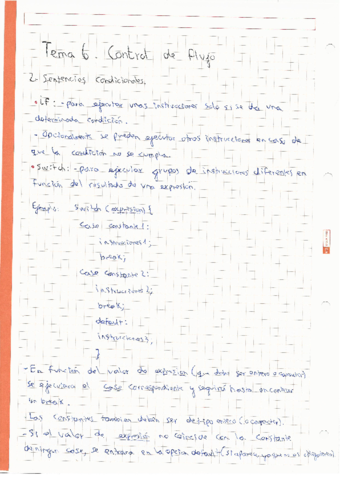 Tema 6. Control de Flujo
2. Sentencias condicionales.
• IF: - para ejecutar unas instrucciones solo si se da una
determinada condición.
- Opcionalmente se pueden ejecutar otras instrucciones en caso de
que la condición no se cumpla.
• Switch: - para ejecutar grupos de instrucciones diferentes en
función del resultado de una expresión.
Ejemplo: Switch (expresion) {
case constante1:
instrucciones1;
break;
case constante2:
instrucciones2;
break;
default:
instrucciones3;
}
- En función del valor de expresion (que debe ser entero o
se ejecutara el case correspondiente y seguirá hasta encontrar
un break.
- Las constantes tambien deben ser de tipo entero (o caracter).
- Si el valor de expresión no coincide con la constante
de ningun case, se entrara en la opcion default (si aparece, ya que es